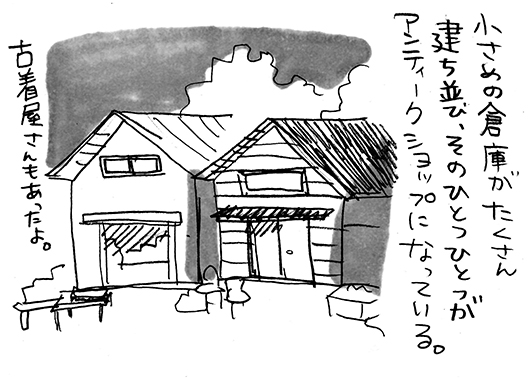 小さめの倉庫がたくさん
建ち並び、そのひとつひとつが
アンティークショップになっている。
古着屋さんもあったよ。